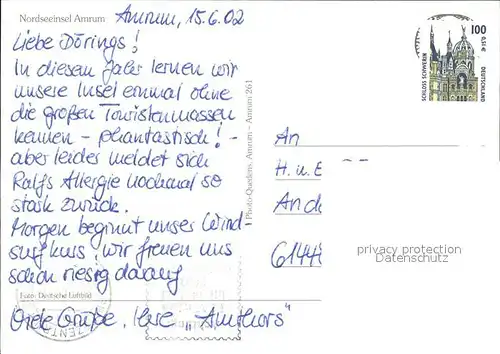 Nordseeinsel Amrum
Amrum, 15.6.02
Liebe Dörings!
In diesem Jahr lernen wir
unsere Insel einmal ohne
die großen Touristenmassen
kennen - phantastisch! -
aber leider meldet sich
Ralfs Allergie nochmal so
stark zurück.
Morgen beginnt unser Wind-
surfkurs! Wir freuen uns
schon riesig darauf
Foto: Deutsche Luftbild
Viele Grüße, Ihre "Amthors"
Photo-Quedens, Amrum - Amrum 261
100
0,51 €
SCHLOSS SCHWERIN
DEUTSCHLAND
An
H. u. E
And
6144
privacy protection
Datenschutz